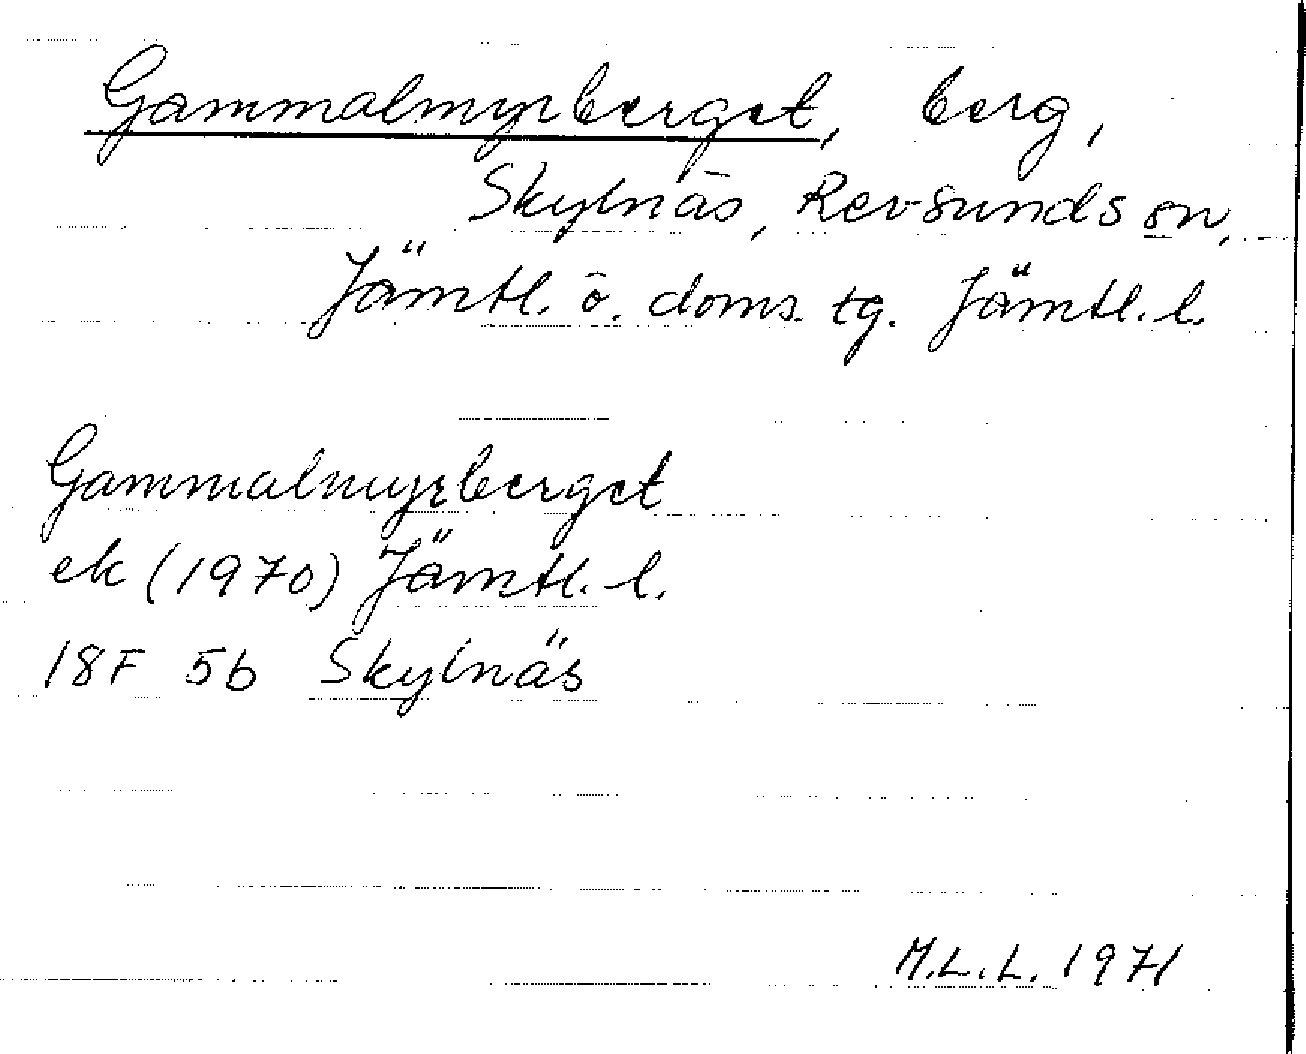 Gammalmyrberget, berg,
Skylnäs, Revsunds sn,
Jämtl. ö. doms. tg. Jämtl. l.
Gammalmyrberget
ek (1970) Jämtl. l.
18F 5b Skylnäs
M.L.L. 1971